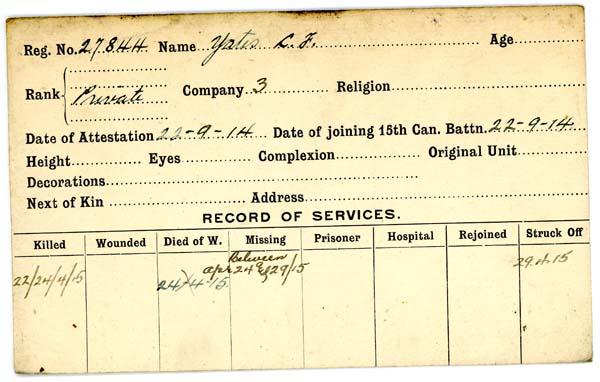 Reg. No. 27844 Name Yates L. F. Age
Rank Private Company 3 Religion
Date of Attestation 22-9-14 Date of joining 15th Can. Battn. 22-9-14
Height Eyes Complexion Original Unit
Decorations
Next of Kin Address
RECORD OF SERVICES.
Killed Wounded Died of W. Missing Prisoner Hospital Rejoined Struck Off
Between
22/24/4/15 24-4-15 Apr 24 & 29/15 29.4.15